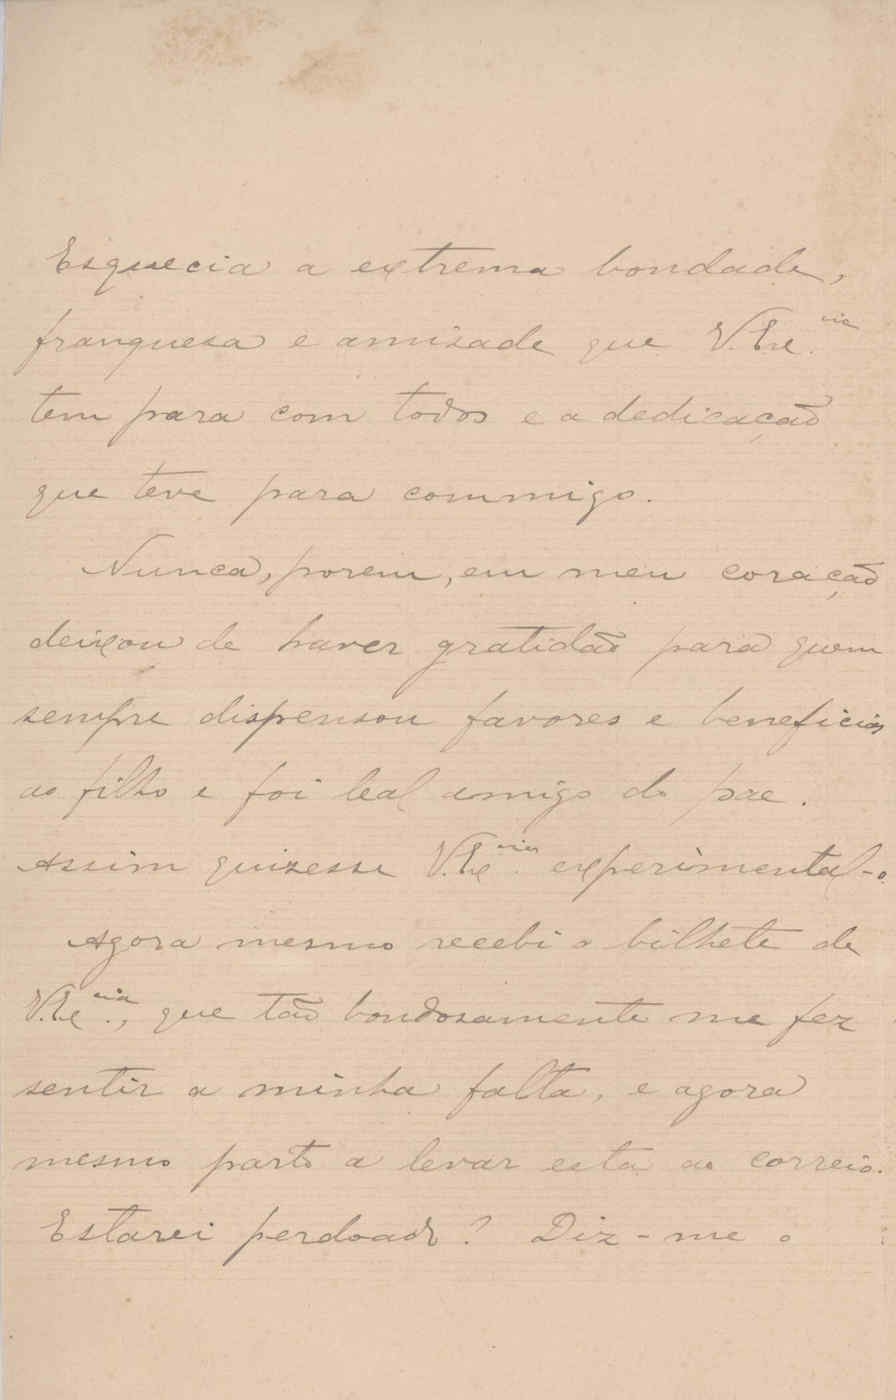 Esquecia a extrema bondade,
franquesa e amisade que V. Ex.cia
tem para com todos e a dedicação
que teve para commigo.
Nunca, porem, em meu coração
deixou de haver gratidão para quem
sempre dispensou favores e beneficios
ao filho e foi leal amigo do pae.
Assim quizesse V. Ex.cia experimental-o.
Agora mesmo recebi o bilhete de
V. Ex.cia, que tão bondosamente me fez
sentir a minha falta, e agora
mesmo parto a levar esta ao correio.
Estarei perdoado? Diz-me o